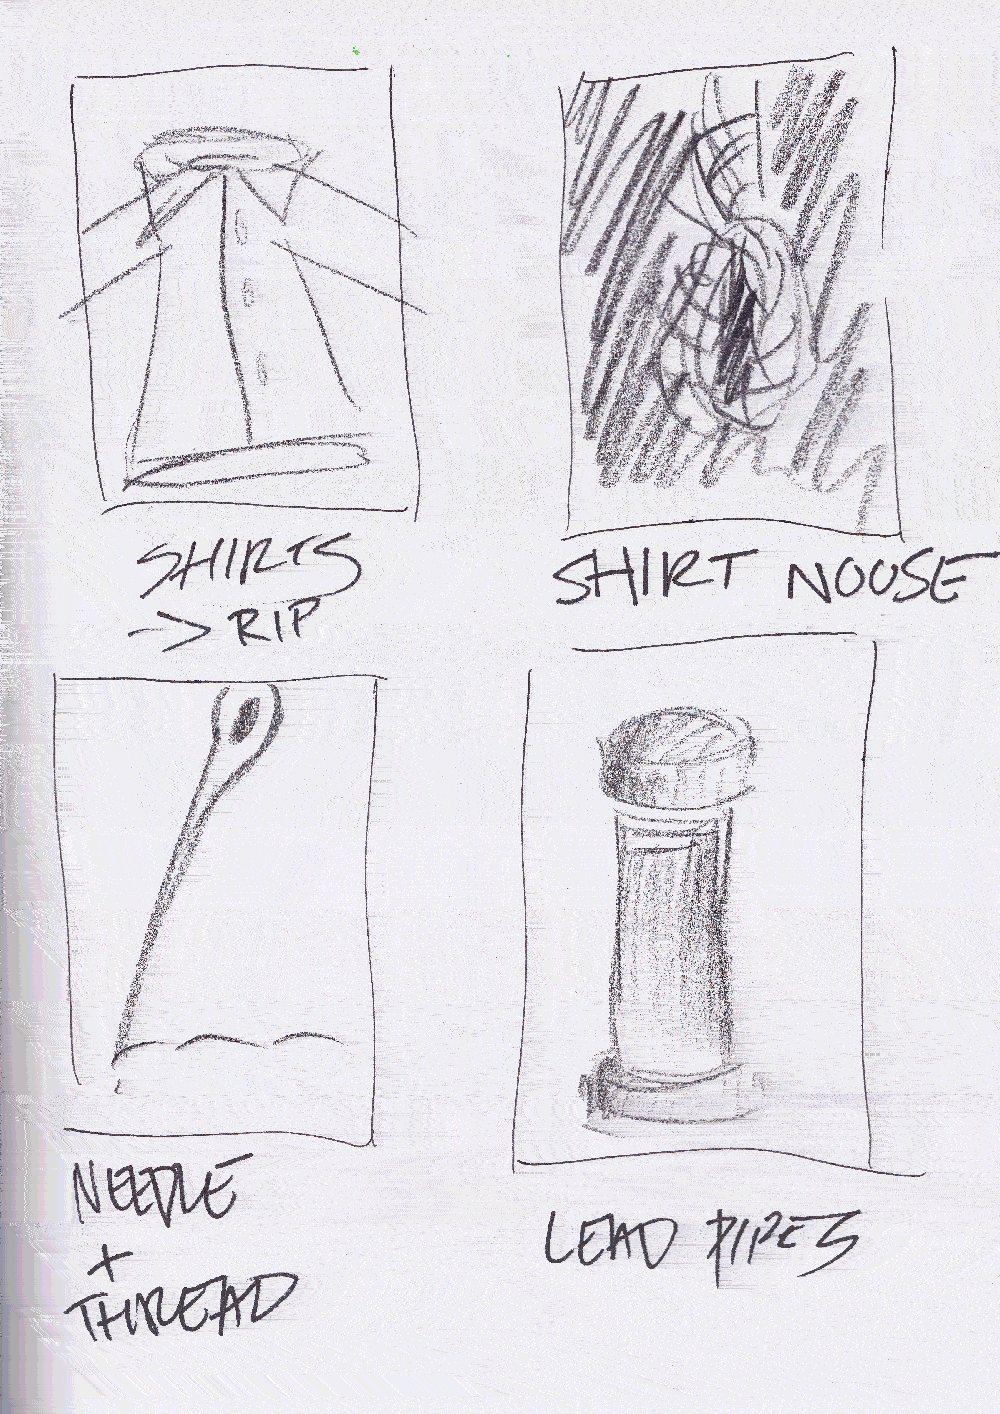 SHIRTS
-> RIP
SHIRT NOOSE
NEEDLE
+
THREAD
LEAD PIPES